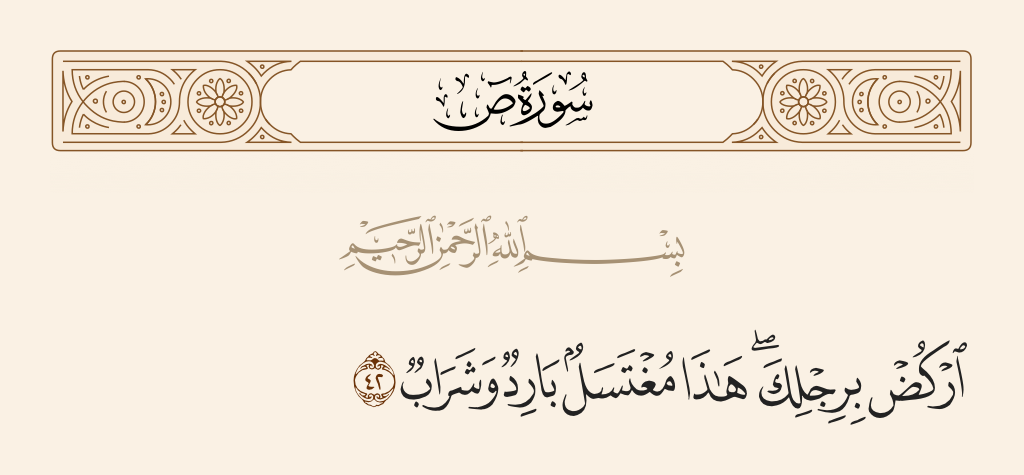 سُورَةُ صٓ
بِسْمِ ٱللَّهِ ٱلرَّحْمَٰنِ ٱلرَّحِيمِ
ٱرْكُضْ بِرِجْلِكَ ۖ هَٰذَا مُغْتَسَلٌۢ بَارِدٌ وَشَرَابٌ ٤٢